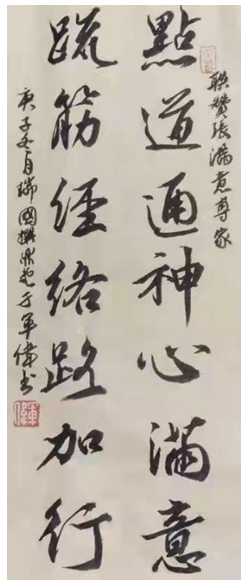 聯贊張滿意專家
點道通神心滿意
疏筋經絡路加行
庚子冬月瑞國撰 于軍偉书